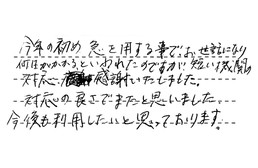 今年の初め急を用する事でお世話になり
何日かかかるといわれたのですが短い依頼
対応、感謝いたしました。
対応の良さでまたと思いました。
今後も利用したいと思っております。